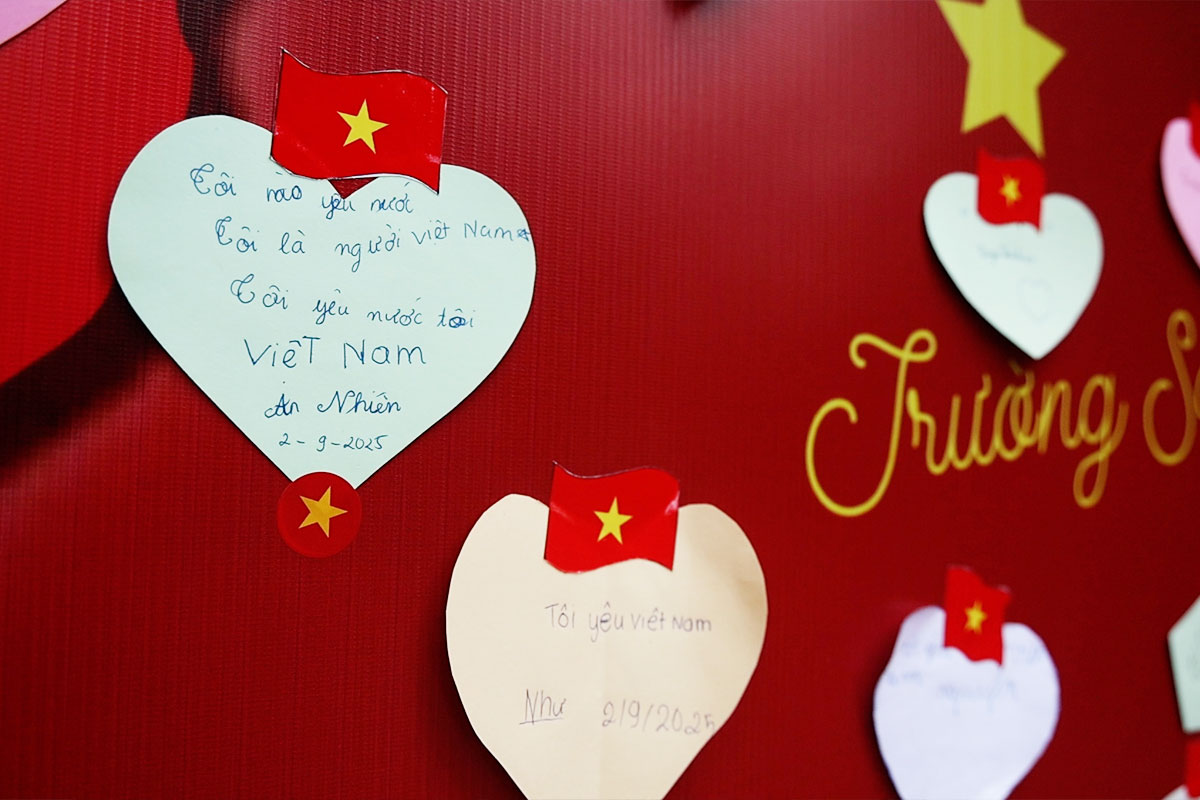 Tôi nào yêu nước
Tôi là người việt Nam
Tôi yêu nước tôi
VIỆT NAM
An Nhiên
2-9-2025
Tôi yêu việt Nam
Như 2/9/2025
Trường